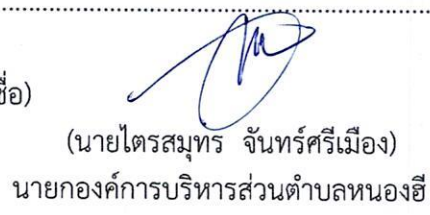 ชื่อ)
(นายไตรสมุทร จันทร์ศรีเมือง)
นายกองค์การบริหารส่วนตำบลหนองฮี